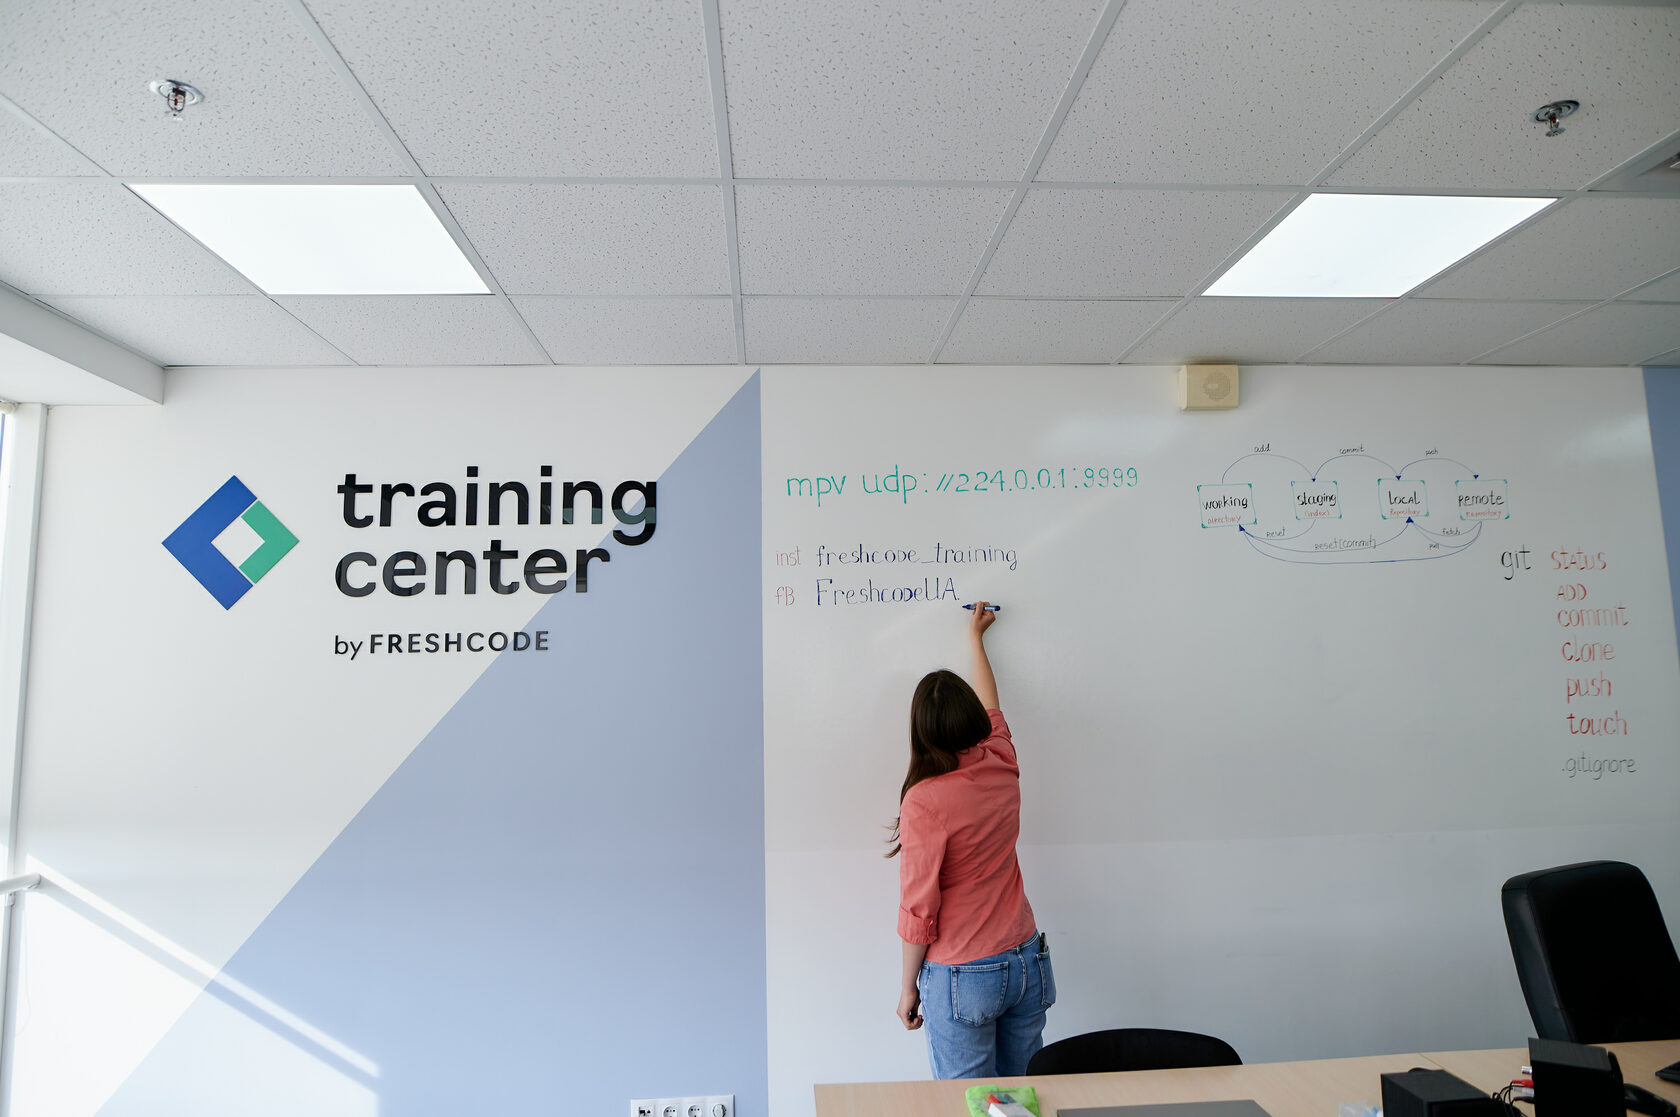 training
center
by FRESHCODE
mpv udp://224.0.0.1:9999
inst freshcode_training
fB FreshcodeUA.
add commit push
working DIRECTORY
staging (index)
LOCAL Repository
REMOTE Repository
Reset
Reset(commit)
fetch
pull
git STATUS
ADD
commit
clone
push
touch
.gitignore